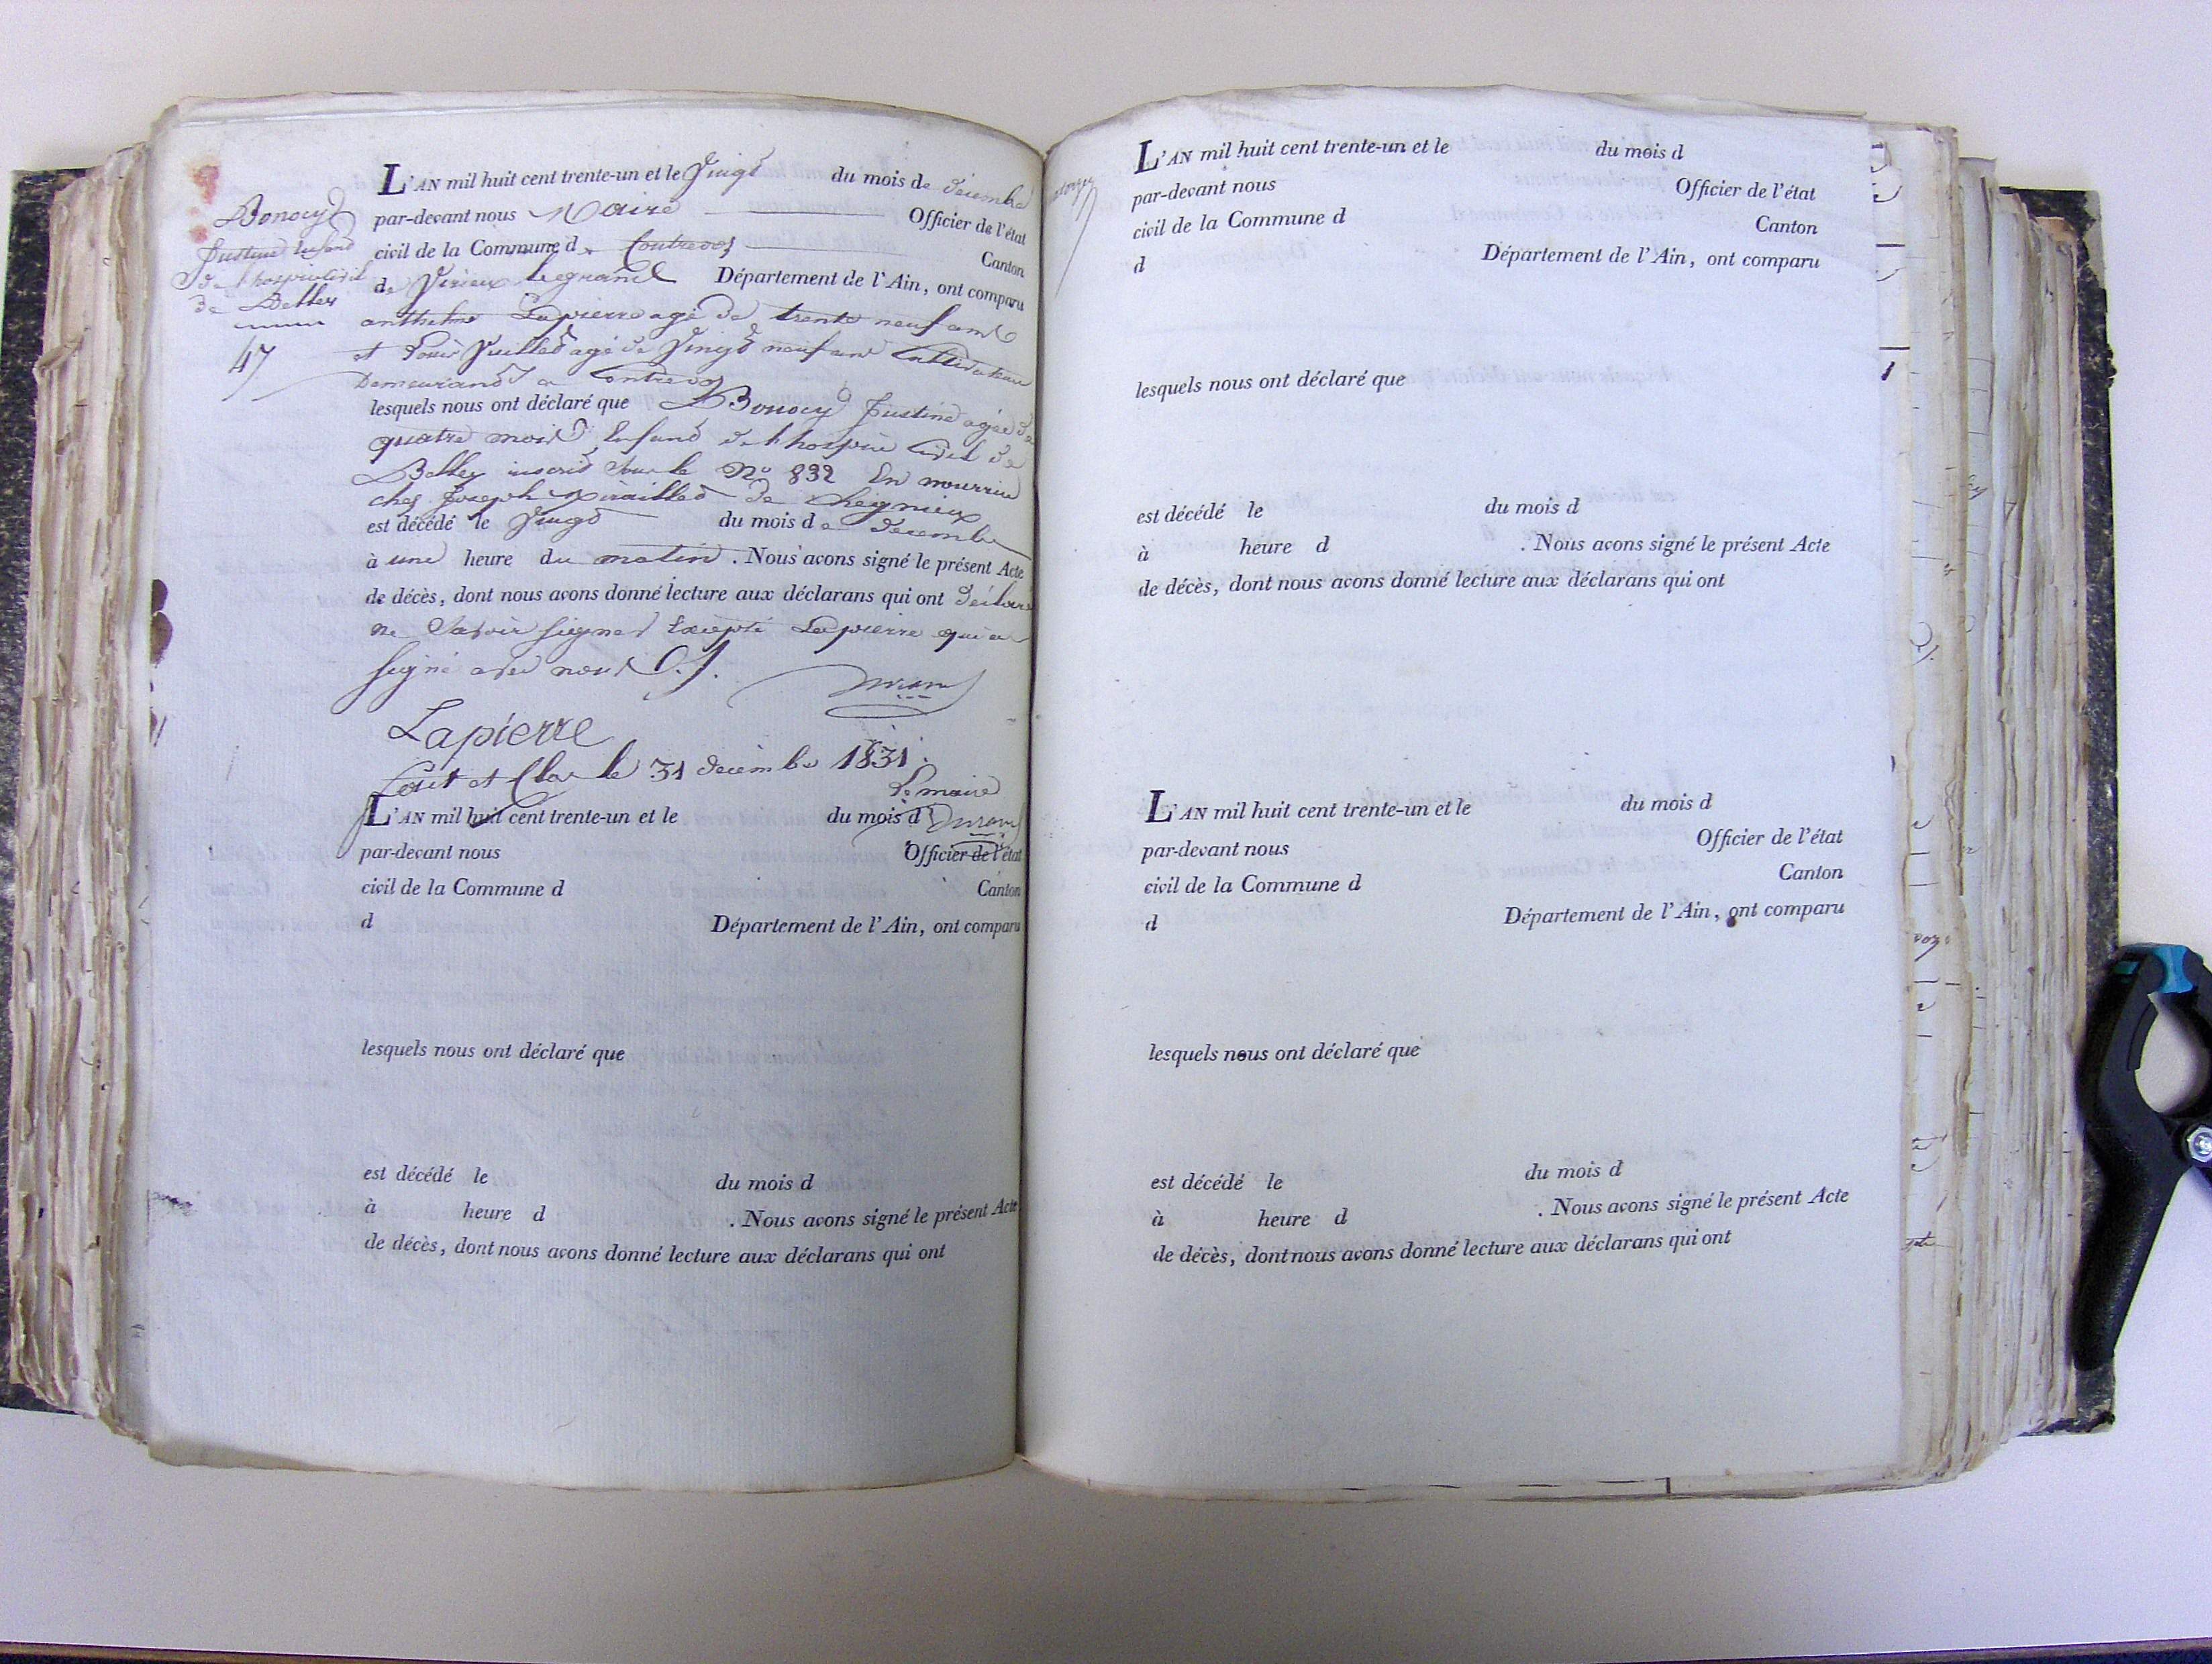 Bonocy
Justine enfand
de l'hospice civil
de Belley
47
L'AN mil huit cent trente-un et le Vingt du mois de décembre
par-devant nous Maire Officier de l'état
civil de la Commune de Contrevoz Canton
de Virieu legrand Département de l'Ain, ont comparu
anthelme Lapierre agé de trente neuf ans
et Louis Juillet agé de Vingt neuf ans Cultivateurs
Demeurand a Contrevoz
lesquels nous ont déclaré que Bonocy Justine agée de
quatre mois Enfand de l'hospice Civil de
Belley inscrit Sous le No 832 En nourrice
chez Joseph de Cheignieux
est décédé le Vingt du mois de décembre
à une heure du matin. Nous avons signé le présent Acte
de décès, dont nous avons donné lecture aux déclarans qui ont déclaré
ne Savoir signer Excepté Lapierre qui a
signé avec nous
Lapierre
Clos le 31 décembre 1831.
Le maire
L'AN mil huit cent trente-un et le du mois d
par-devant nous Officier de l'état
civil de la Commune d Canton
d Département de l'Ain, ont comparu
lesquels nous ont déclaré que
est décédé le du mois d
à heure d . Nous avons signé le présent Acte
de décès, dont nous avons donné lecture aux déclarans qui ont
L'AN mil huit cent trente-un et le du mois d
par-devant nous Officier de l'état
civil de la Commune d Canton
d Département de l'Ain, ont comparu
lesquels nous ont déclaré que
est décédé le du mois d
à heure d . Nous avons signé le présent Acte
de décès, dont nous avons donné lecture aux déclarans qui ont
L'AN mil huit cent trente-un et le du mois d
par-devant nous Officier de l'état
civil de la Commune d Canton
d Département de l'Ain, ont comparu
lesquels nous ont déclaré que
est décédé le du mois d
à heure d . Nous avons signé le présent Acte
de décès, dont nous avons donné lecture aux déclarans qui ont